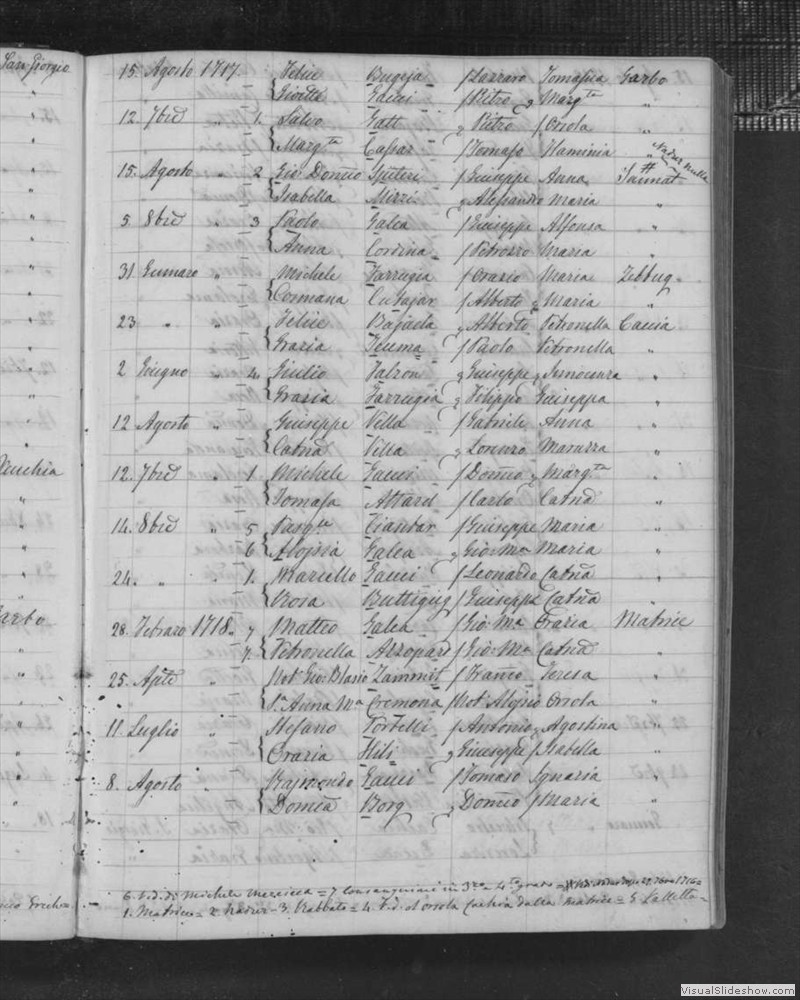 San Giorgio
15. Agosto 1717. Felice Bugeja f Lazzaro Tomasua Garbo
Gioelle Gauci f Pietro q Margta "
12 7bre " 1. Salvo Gatt q Pietro f Orsola "
Margta Caspar f Tomaso Flaminia " Nadur nulla
15. Agosto " 2 Gio Domco Spiteri f Giuseppe Anna Sannat
Isabella Mizzi q Alessandro Maria "
5. 8bre " 3 Paolo Galea f Giuseppe Alfonsa "
Anna Cordina f Petruzzo Maria "
31. Gennaro " Michele Farrugia f Orazio Maria Zebbug
Cormana Cutajar f Alberto q Maria "
23 " " Felice Bajada q Alberto Petronella Caccia
Grazia Teuma f Paolo Petronella "
2 Giugno " 4. Giulio Falzon q Giuseppe q Innocenza "
Grazia Farrugia q Filippo Giuseppa "
12 Agosto " Giuseppe Vella f Gabriele Anna "
Catna Vella q Lonzo Maruzza "
12. 7bre " 1 Michele Gauci f Domco q Margta
Tomasa Attard f Carlo Catna "
Vecchia
14. 8bre " 5 Pasqle Ciantar f Giuseppe Maria "
6 Aloysia Galea q Gio: Ma Maria "
24. " " 1. Marcello Gauci f Leonardo Catna "
Rosa Buttigieg f Giuseppe Catna "
Garbo
28. Febraro 1718. 7 Matteo Galea f Gio: Ma Grazia Matrice
7. Petronella Azzopard f Gio: Ma Catna "
25. Aple " Not Gio: Blasio Zammit f Franco Teresa "
Sa Anna Ma Cremona f Not Aloysio Orsola "
11. Luglio " Stefano Tortelli f Antonio q Agostina "
Grazia Hili q Giuseppe f Isabella "
8. Agosto " Raimondo Gauci f Tomaso Ignazia "
Domca Borg q Domco f Maria "
6. V.d. di Michele Mercieca = 7 Consanguinei in 3zo = 4to grado =
1. Matrice = 2 Nadur = 3. Rabbato = 4. V.d. d'Orsola Cachia dalla Matrice = 5 Valletta =
VisualSlideshow.com